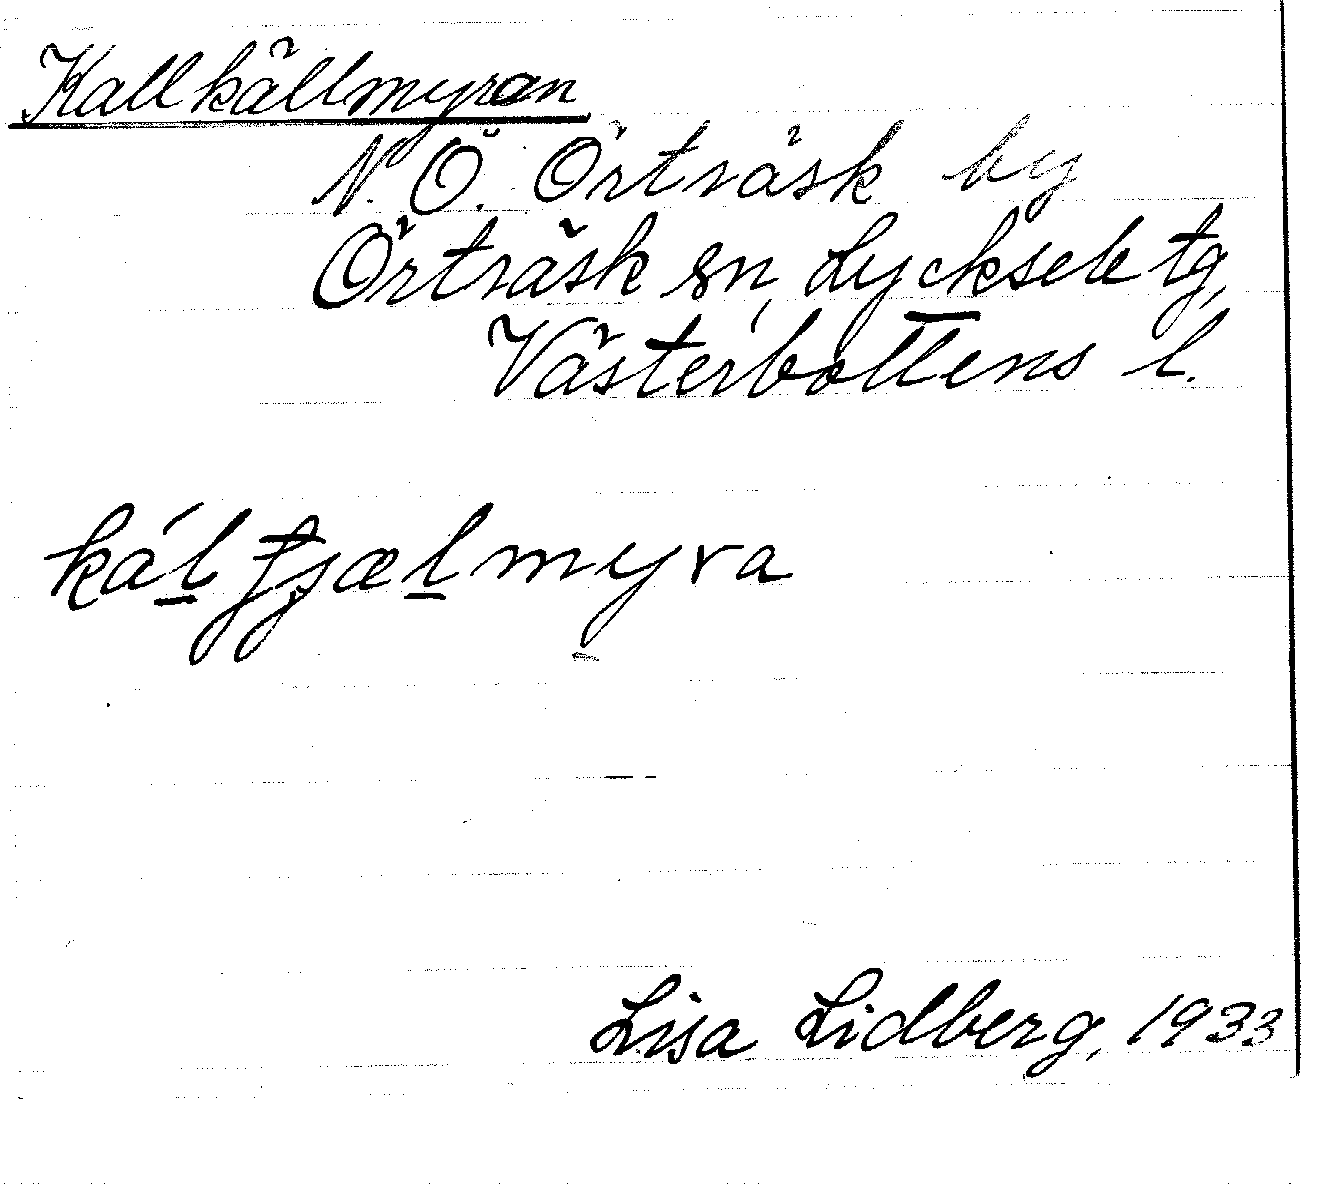 Kallkällmyran
N. Ö. Örträsk by
Örträsk sn, Lycksele tg,
Västerbottens l.
kál̲ tjæl̲myra
Lisa Lidberg, 1933